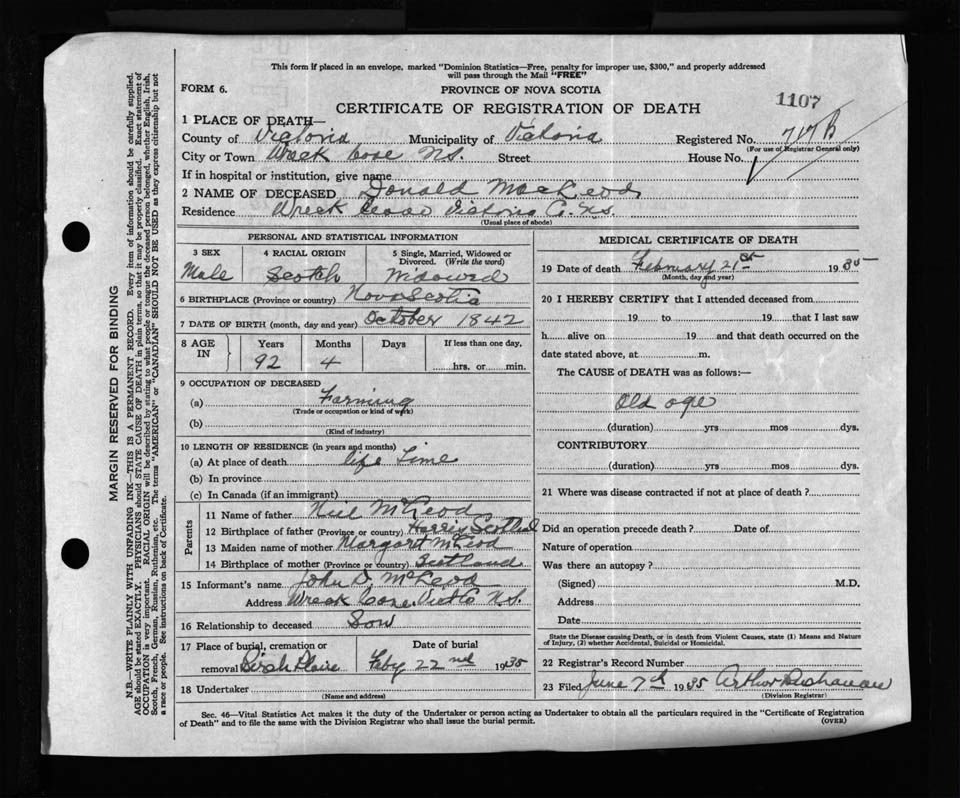 This form if placed in an envelope, marked "Dominion Statistics—Free, penalty for improper use, $300," and properly addressed
will pass through the Mail "FREE"
FORM 6.
PROVINCE OF NOVA SCOTIA
1107
CERTIFICATE OF REGISTRATION OF DEATH
1 PLACE OF DEATH—
County of Victoria Municipality of Victoria Registered No. 717B
(For use of Registrar General only)
City or Town Wreck Cove N.S. Street House No.
If in hospital or institution, give name
2 NAME OF DECEASED Donald MacLeod
Residence Wreck Cove Victoria Co. N.S.
(Usual place of abode)
PERSONAL AND STATISTICAL INFORMATION
3 SEX 4 RACIAL ORIGIN 5 Single, Married, Widowed or
Divorced. (Write the word)
Male Scotch Widowed
6 BIRTHPLACE (Province or country) Nova Scotia
7 DATE OF BIRTH (month, day and year) October 1842
8 AGE IN Years Months Days If less than one day,
92 4 hrs. or min.
9 OCCUPATION OF DECEASED
(a) Farming
(Trade or occupation or kind of work)
(b)
(Kind of industry)
10 LENGTH OF RESIDENCE (in years and months)
(a) At place of death life Time
(b) In province
(c) In Canada (if an immigrant)
Parents
11 Name of father Neil McLeod
12 Birthplace of father (Province or country) Harris Scotland
13 Maiden name of mother Margaret McLeod
14 Birthplace of mother (Province or country) Scotland
15 Informant's name John D. McLeod
Address Wreck Cove Vict Co N.S.
16 Relationship to deceased Son
17 Place of burial, cremation or Date of burial
removal Birch Plaine Feby 22nd 1935
18 Undertaker
(Name and address)
MEDICAL CERTIFICATE OF DEATH
19 Date of death February 21st 1935
(Month, day and year)
20 I HEREBY CERTIFY that I attended deceased from
19 to 19 that I last saw
h alive on 19 and that death occurred on the
date stated above, at m.
The CAUSE of DEATH was as follows:—
Old age
(duration) yrs mos dys.
CONTRIBUTORY
(duration) yrs mos dys.
21 Where was disease contracted if not at place of death?
Did an operation precede death? Date of
Nature of operation
Was there an autopsy?
(Signed) M.D.
Address
Date
State the Disease causing Death, or in death from Violent Causes, state (1) Means and Nature
of Injury, (2) whether Accidental, Suicidal or Homicidal.
22 Registrar's Record Number
23 Filed June 7th 1935 Arthur Buchanan
(Division Registrar)
Sec. 46—Vital Statistics Act makes it duty of the Undertaker or person acting as Undertaker to obtain all the particulars required in the "Certificate of Registration
of Death" and to file the same with the Division Registrar who shall issue the burial permit.
(OVER)
MARGIN RESERVED FOR BINDING
N.B.—WRITE PLAINLY WITH UNFADING INK—THIS IS A PERMANENT RECORD. Every item of information should be carefully supplied.
AGE should be stated EXACTLY. PHYSICIANS should STATE CAUSE OF DEATH in plain terms, so that it may be properly classified. Exact statement of
OCCUPATION is very important. RACIAL ORIGIN will be described by stating to what people or tongue the deceased person belonged, whether English, Irish,
Scotch, French, German, Russian, Ruthenian, etc. The terms "AMERICAN" or "CANADIAN" SHOULD NOT BE USED as they express citizenship but not
a race or people. See instructions on back of Certificate.